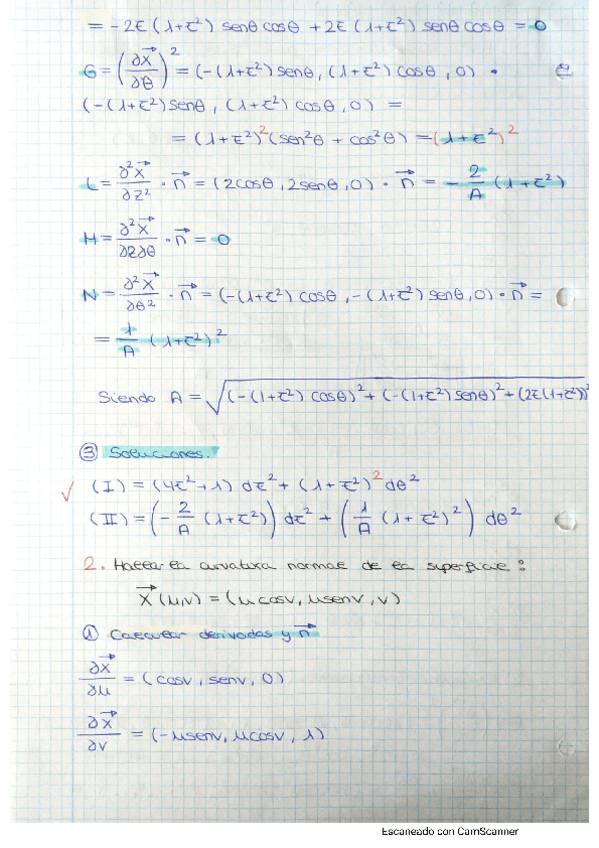 = -2z (1+z²) senθ cosθ + 2z (1+z²) senθ cosθ = 0
G = (∂x⃗/∂θ)² = (-(1+z²) senθ, (1+z²) cosθ, 0) •
(-(1+z²) senθ, (1+z²) cosθ, 0) =
= (1+z²)² (sen²θ + cos²θ) = (1+z²)²
L = ∂²x⃗/∂z² • n⃗ = (2cosθ, 2senθ, 0) • n⃗ = -2/A (1+z²)
M = ∂²x⃗/∂z∂θ • n⃗ = 0
N = ∂²x⃗/∂θ² • n⃗ = (-(1+z²) cosθ, -(1+z²) senθ, 0) • n⃗ =
= 1/A (1+z²)²
Siendo A = √(-(1+z²) cosθ)² + (-(1+z²) senθ)² + (2z(1+z²))²
③ Soluciones.
√ (I) = (4z²+1) dz² + (1+z²)² dθ²
(II) = (-2/A (1+z²)) dz² + (1/A (1+z²)²) dθ²
2. Hallar la curvatura normal de la superficie:
x⃗(μ,v) = (μcosv, μsenv, v)
① Calcular derivadas y n⃗
∂x⃗/∂μ = (cosv, senv, 0)
∂x⃗/∂v = (-μsenv, μcosv, 1)
Escaneado con CamScanner